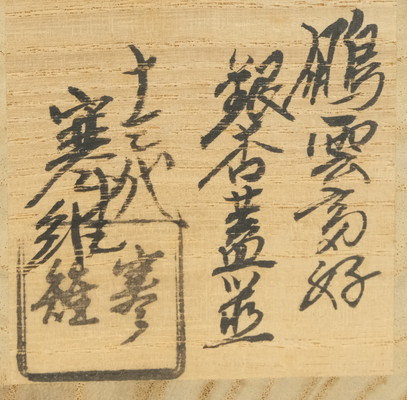 鵬雲斎好
銀杏蓋置
十三代
寒雉
寒
雉